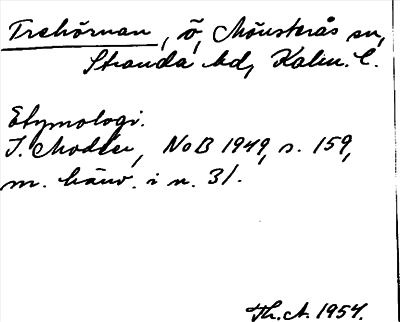 Trehörnan, ö, Mönsterås sn,
Stranda hd, Kalm. l.
Etymologi.
I. Modéer, NoB 1949, s. 159,
m. hänv. i n. 31.
Th. A. 1954.